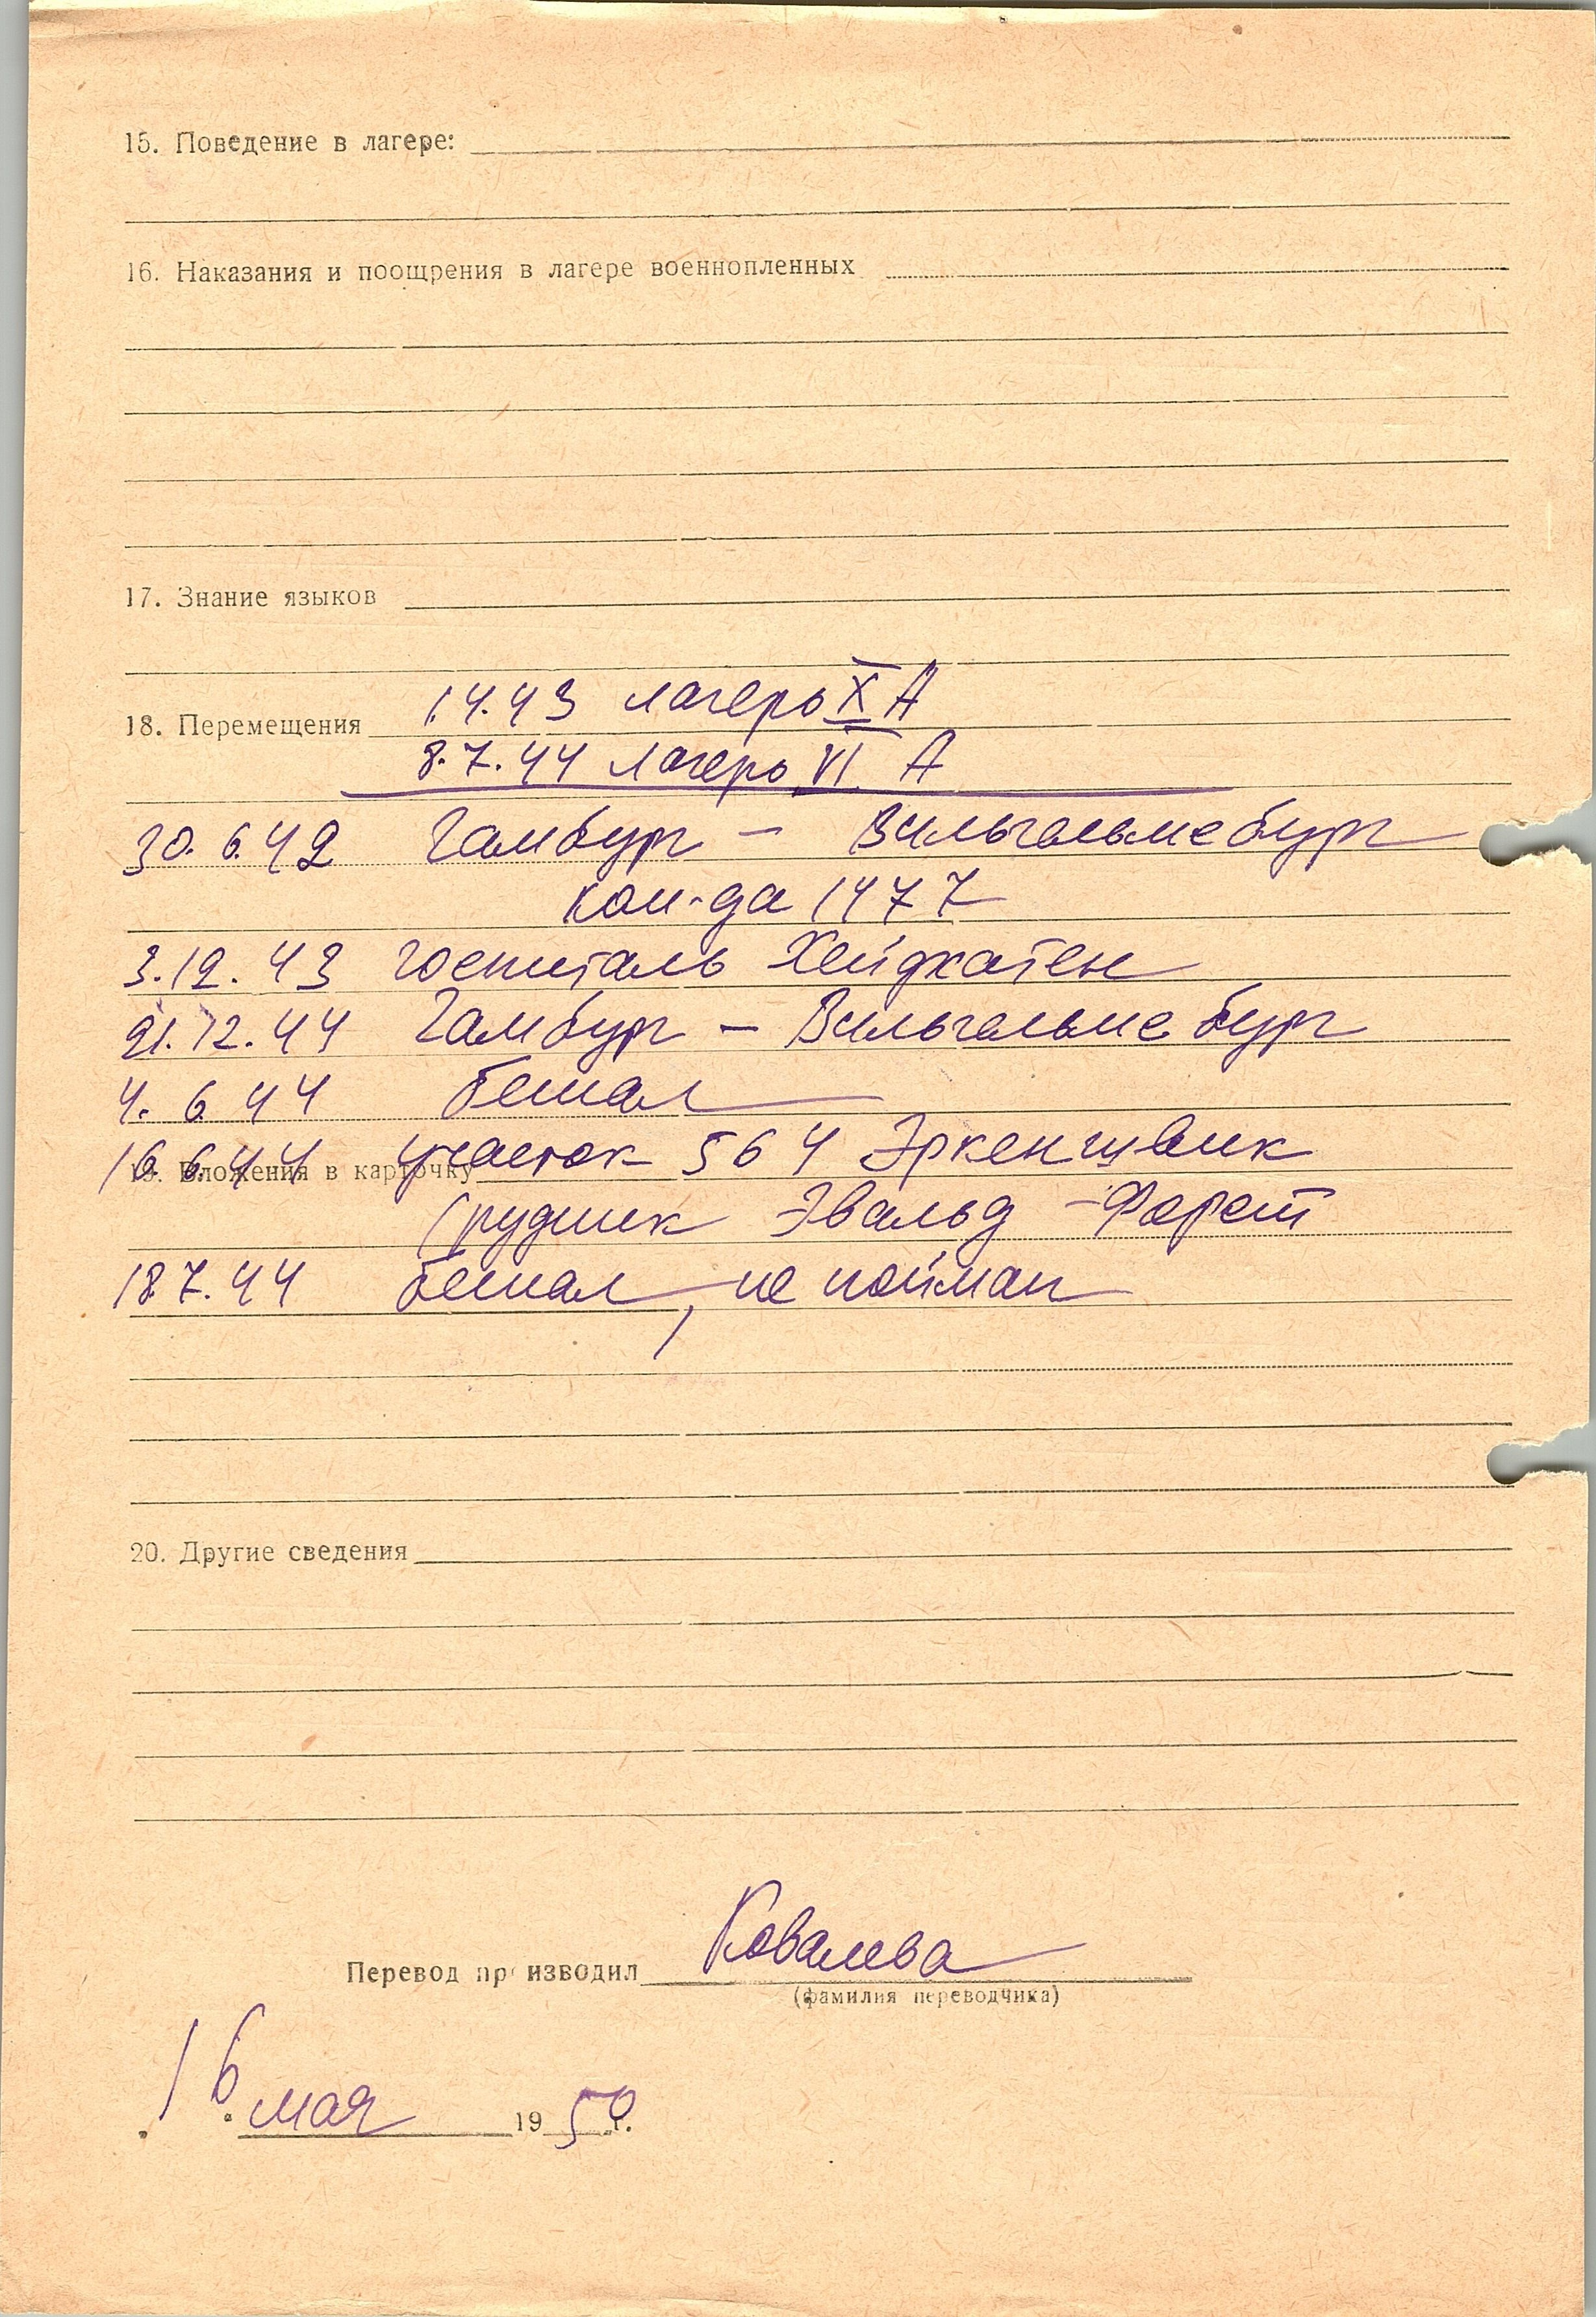 15. Поведение в лагере:
16. Наказания и поощрения в лагере военнопленных
17. Знание языков
1.4.43 лагерь X А
18. Перемещения
8.7.44 лагерь VI А
30.6.42 Гамбург - Вильгельмсбург
ком-да 1477
3.12.43 госпиталь Хейдкатен
21.12.44 Гамбург - Вильгельмсбург
4.6.44 бежал
16.6.44 участок 564 Эркеншвик
19. Вложения в карточку
(рудник Эвальд - Форст
18.7.44 бежал, не пойман
20. Другие сведения
Перевод производил Ковалева
(фамилия переводчика)
16 мая 1950 г.